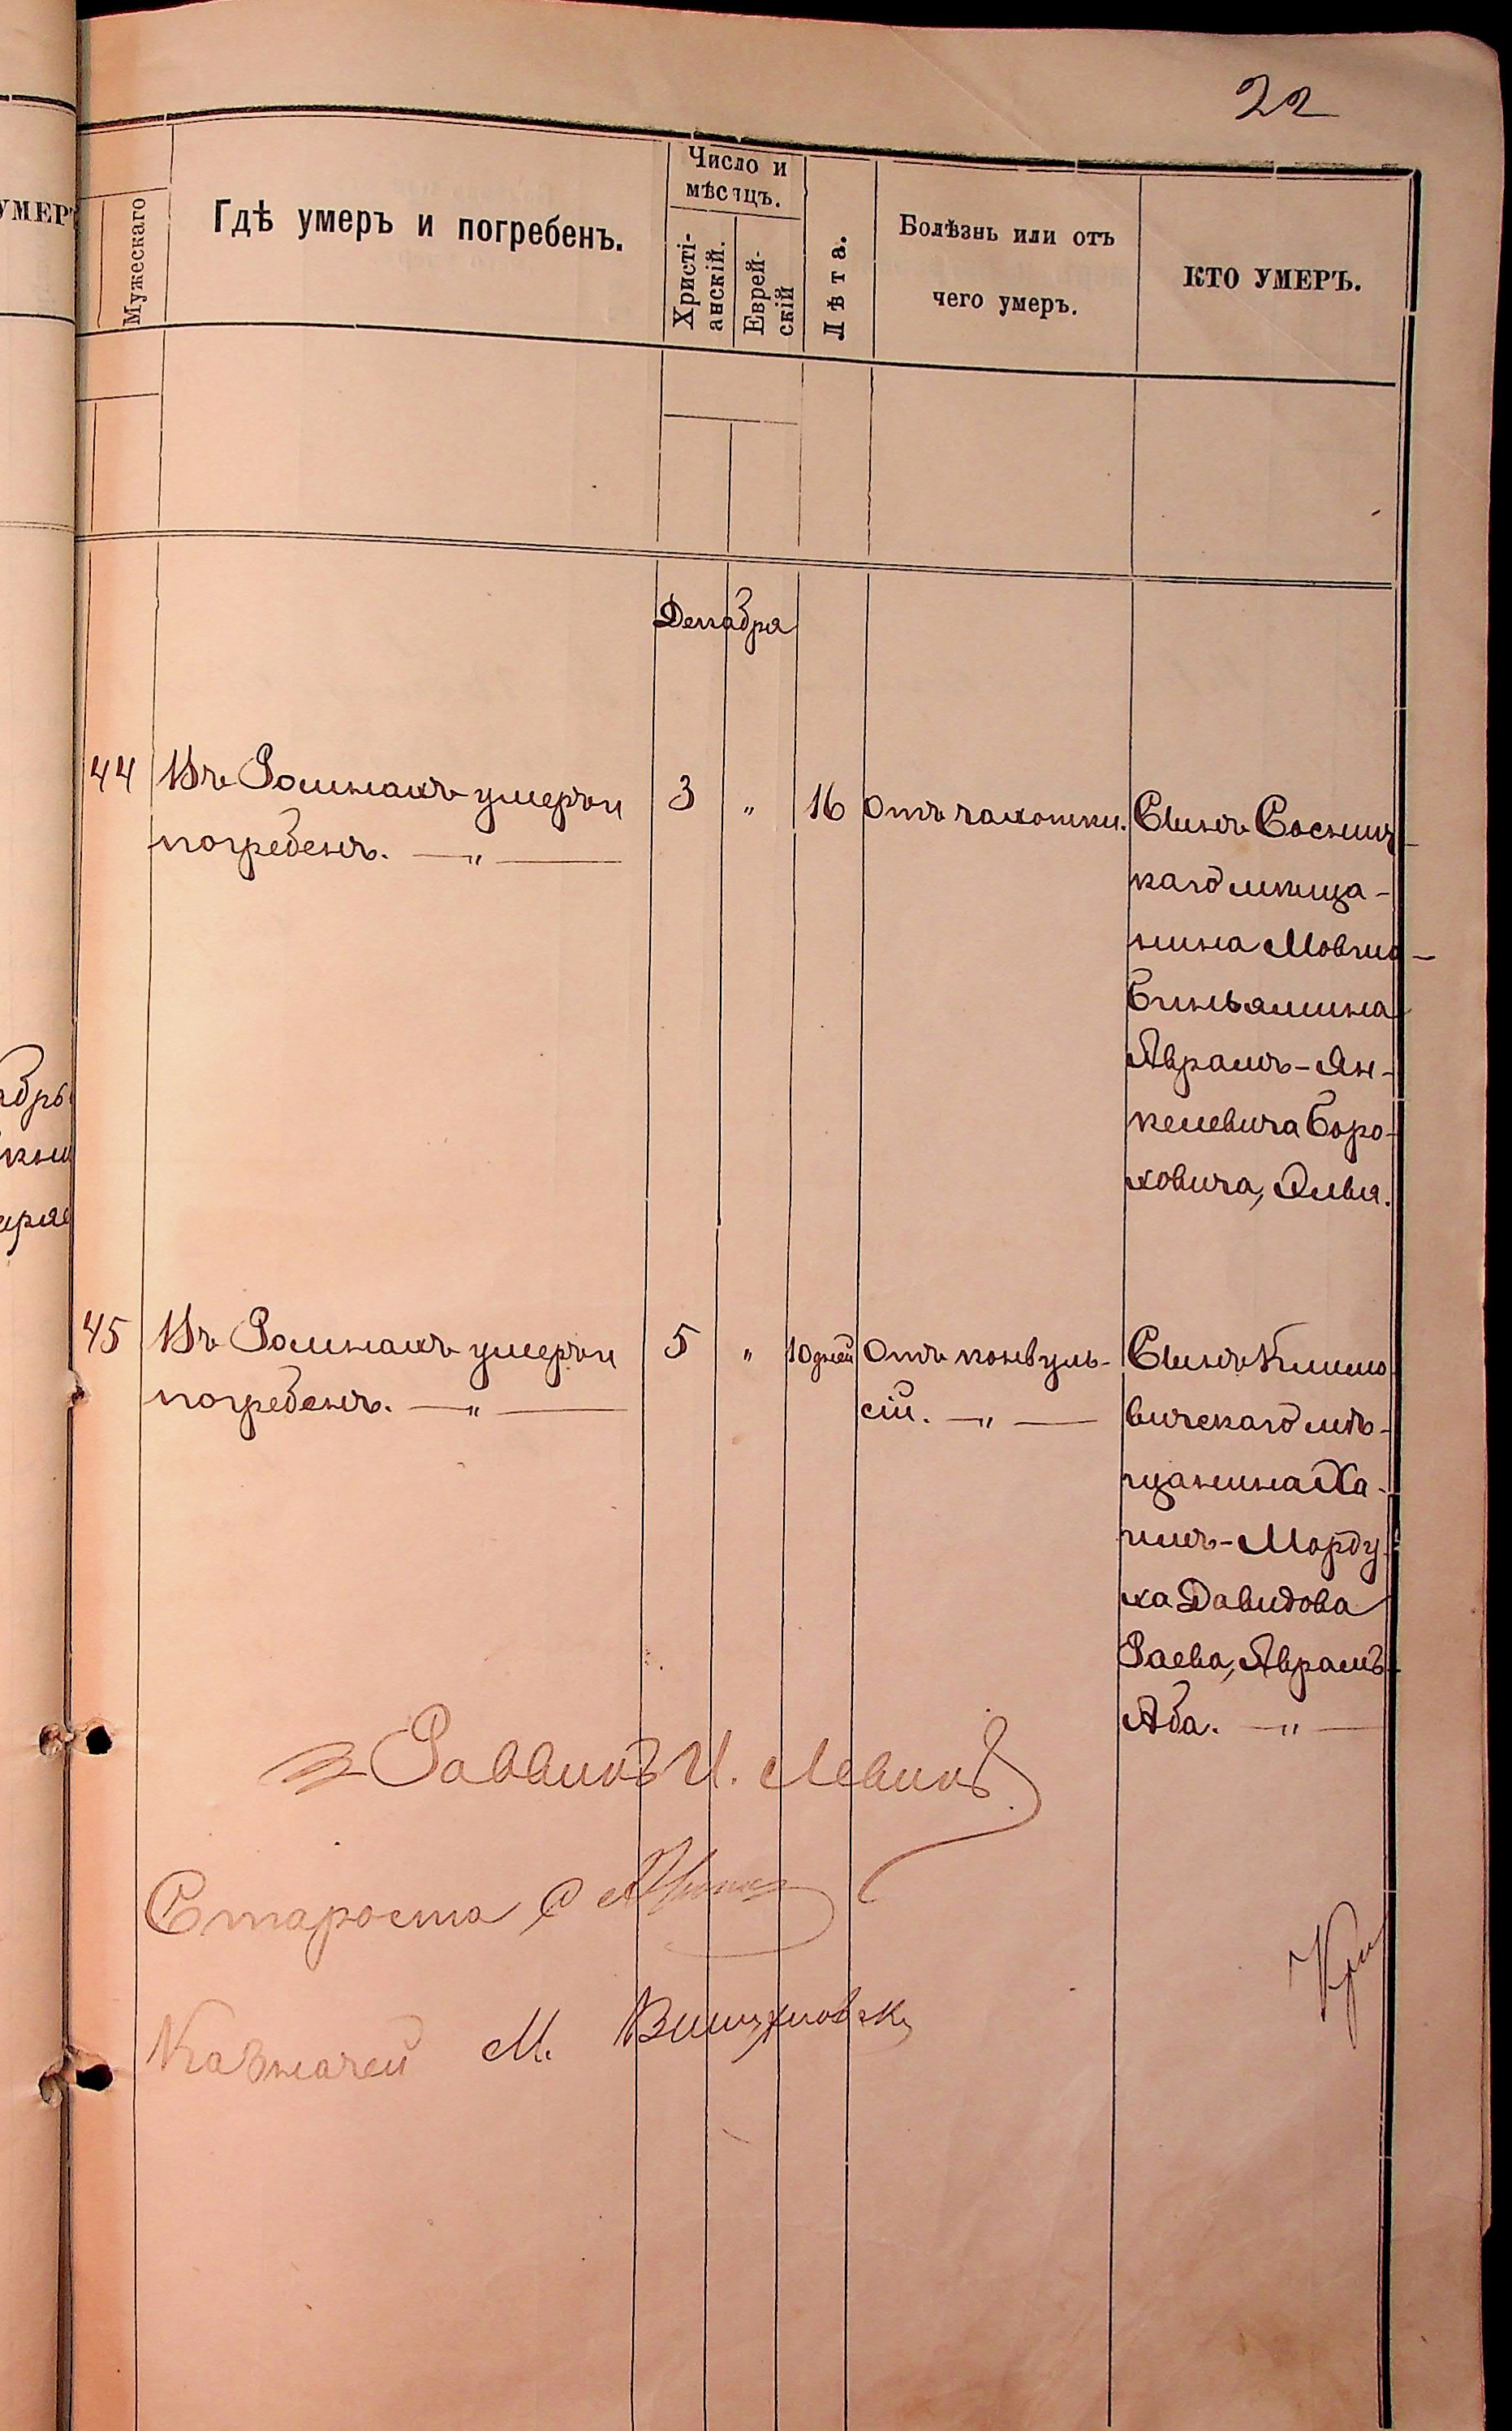 22
УМЕР
Мужескаго
Гдѣ умеръ и погребенъ.
Число и
мѣсяцъ.
Христі-
анскій.
Еврей-
скій
Лѣта.
Болѣзнь или отъ
чего умеръ.
КТО УМЕРЪ.
Декабря
44 Въ Ромнахъ умеръ и 3 " 16 Отъ чахотки. Сынъ Сосниц-
погребенъ. — " —
каго мѣща-
нина Мовша-
Биньямина
Аврамъ-Ян-
келевича Боро-
ховича, Элья.
45 Въ Ромнахъ умеръ и 5 " 10 дней Отъ конвуль- Сынъ Климо
погребенъ. — " — сій. — " — вичскаго мѣ-
щанина Ха-
имъ-Морду-
ха Давидова
Раева, Аврамъ-
Аба. — " —
Раввинъ И. Левинъ
Староста
Казначей М.